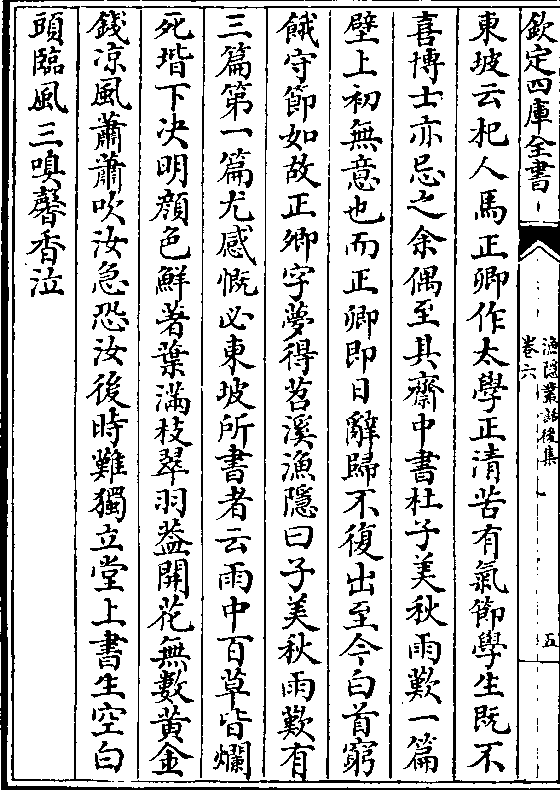 欽定四庫全書
漁隠叢話後集
卷六
五
東坡云杞人馬正卿作太學正清苦有氣節學生既不
喜博士亦忌之余偶至其齋中書杜子美秋雨歎一篇
壁上初無意也而正卿即日辭歸不復出至今白首窮
餓守節如故正卿字夢得苕溪漁隱曰子美秋雨歎有
三篇第一篇尤感慨必東坡所書者云雨中百草皆爛
死堦下决明顔色鮮著葉滿枝翠羽葢開花無數黄金
錢凉風蕭蕭吹汝急恐汝後時難獨立堂上書生空白
頭臨風三嗅馨香泣